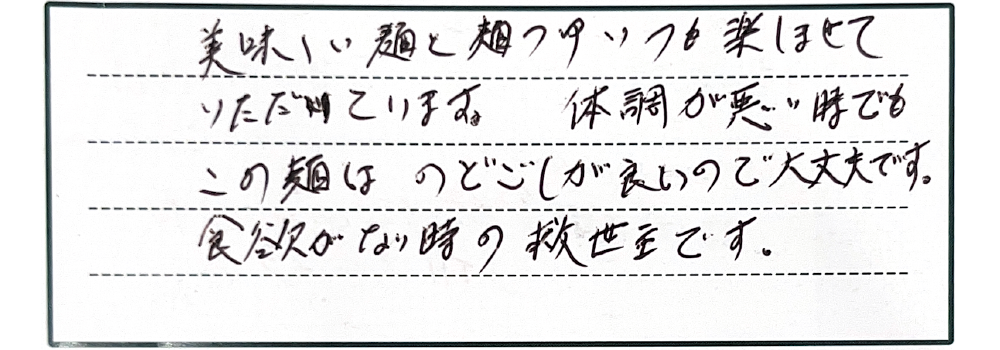 美味しい麺と麺つゆいつも楽しませて
いただいています。 体調が悪い時でも
この麺は のどごしが良いので大丈夫です。
食欲がない時の救世主です。